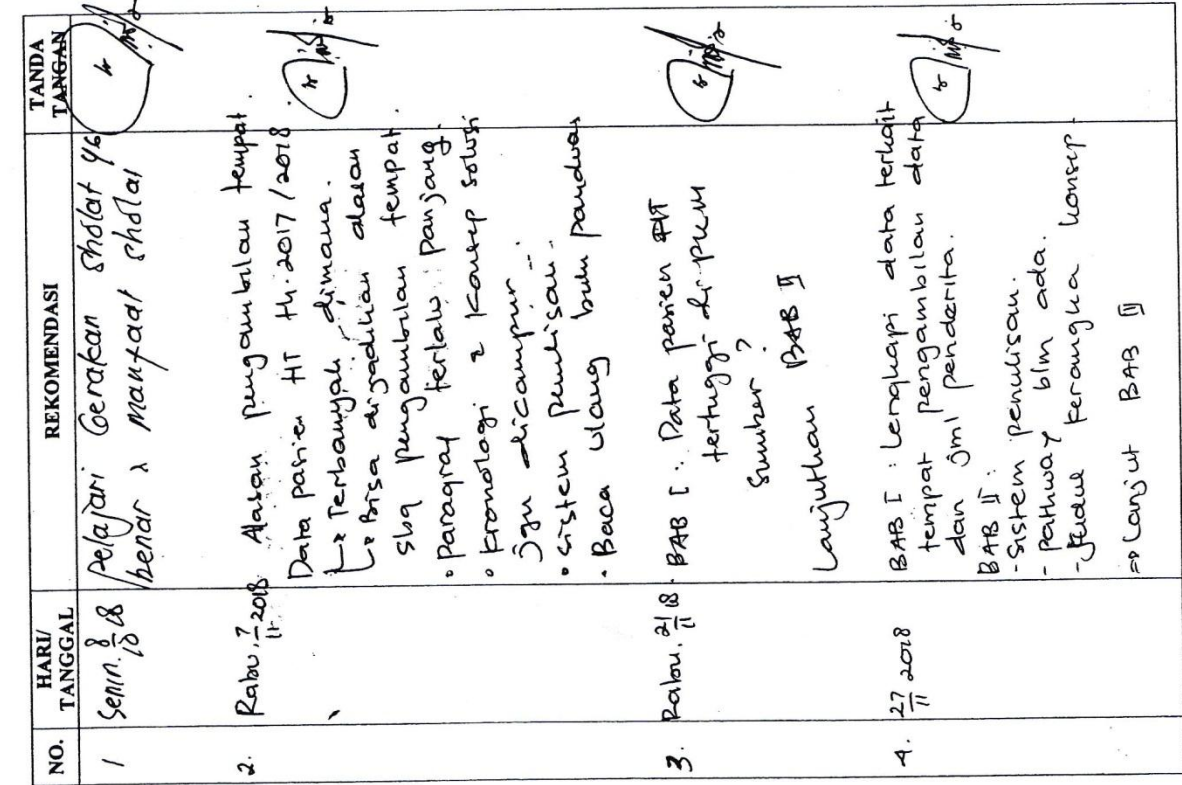 NO.
HARI/
TANGGAL
REKOMENDASI
TANDA
TANGAN
1
Senin. 8/10 18
Pelajari Gerakan sholat yg
benar & manfaat sholat
2.
Rabu, 7/11 2018
Alasan pengambilan tempat.
Data pasien HT th. 2017/2018
↳ Terbanyak dimana.
↳ Bisa dijadikan alasan
sbg pengambilan tempat.
• Paragraf terlalu panjang.
• Kronologi & konsep solusi
jgn dicampur
• Sistem penulisan.
• Baca ulang buku panduan
3.
Rabu, 21/11 18
• BAB I : Data pasien HT
tertinggi di PKM
Sumber?
Lanjutkan BAB II
4.
27/11 2018
BAB I : Lengkapi data terkait
tempat pengambilan data
dan jml penderita.
BAB II :
- Sistem penulisan.
- Pathway blm ada.
- Judul kerangka konsep
=> Lanjut BAB III